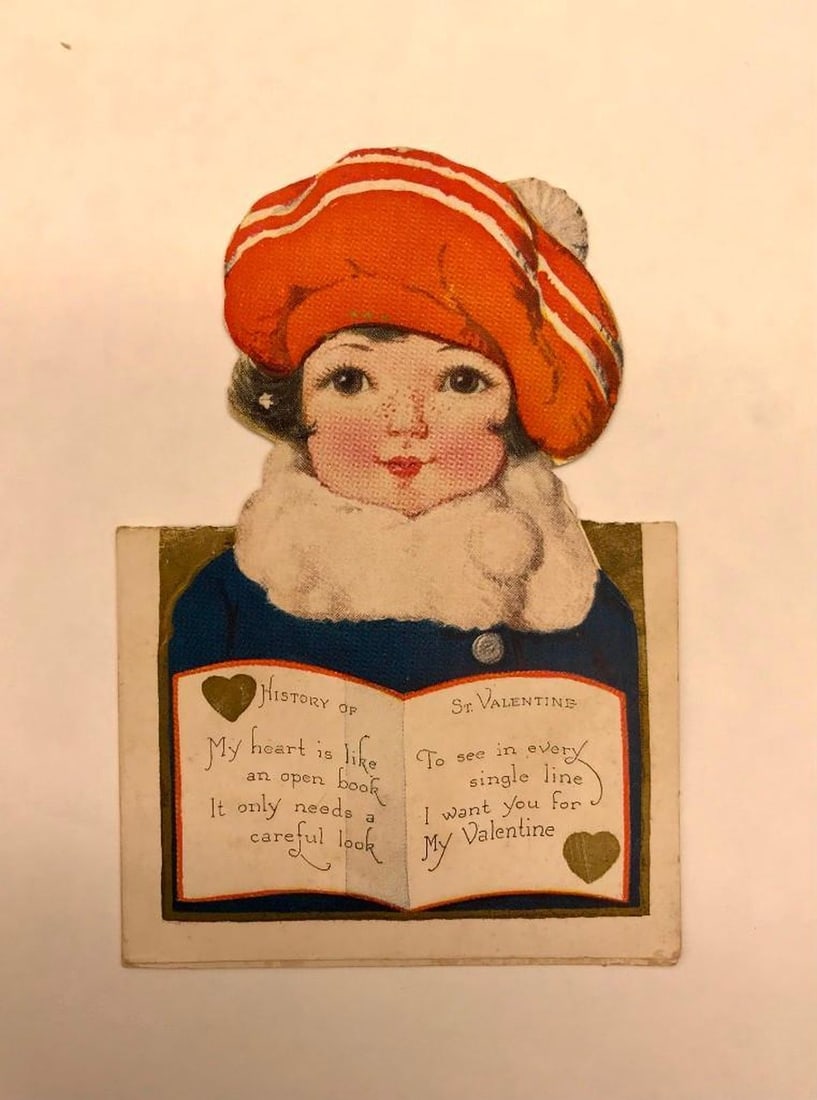 HISTORY OF
My heart is like
an open book
It only needs a
careful look
ST. VALENTINE
To see in every
single line
I want you for
My Valentine